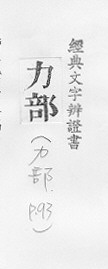 經典文字辨證書
力部
(力部.
P.93)